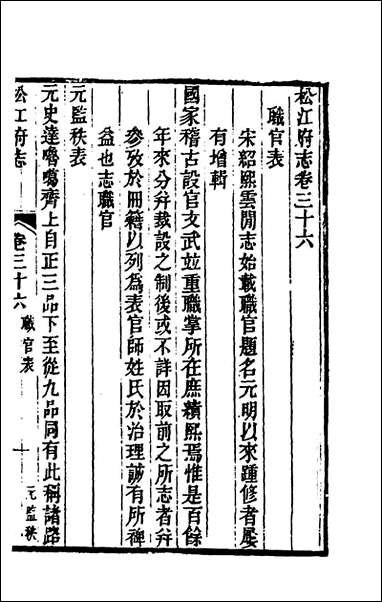 松江府志卷三十六
職官表
宋紹熙雲閒志始載職官題名元明以來踵修者屢
有增輯
國家稽古設官文武竝重職掌所在庶績熙焉惟是百餘
年來分幷裁設之制後或不詳因取前之所志者幷
參攷於冊籍以列爲表官師姓氏於治理誠有所裨
益也志職官
元監秩表
元史達嚕噶齊上自正三品下至從九品同有此稱諸路
松江府志
卷三十六
職官表
一
元監秩